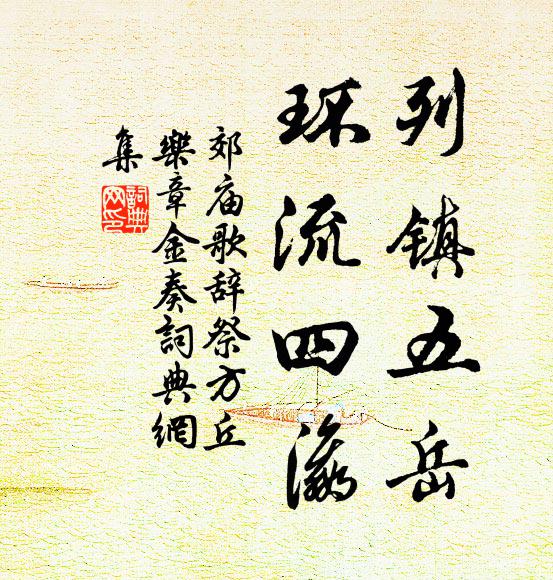 列镇五岳
环流四瀛
郊庙歌辞祭方丘
樂章金奏詞典網
集
詞典
网印